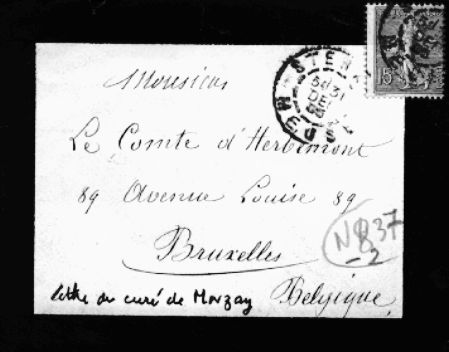 Monsieur
Le Comte d'Herbemont
89 Avenue Louise 89
Bruxelles
Belgique
lettre du curé de Mouzay
N 837
-2
STENAY
31
DE
15